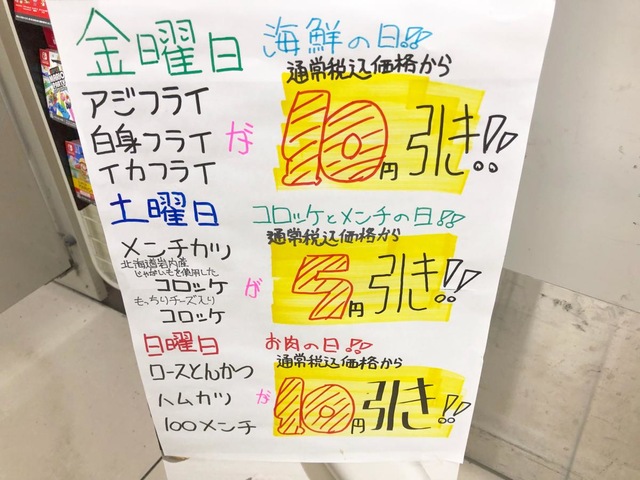 金曜日 海鮮の日!!
通常税込価格から
アジフライ
白身フライ が 10円引き!!
イカフライ
土曜日 コロッケとメンチの日!!
通常税込価格から
メンチカツ
北海道岩内産
じゃがいもを使用した
コロッケ が 5円引き!!
もっちりチーズ入り
コロッケ
日曜日 お肉の日!!
通常税込価格から
ロースとんかつ
ハムカツ が 10円引き!!
100メンチ